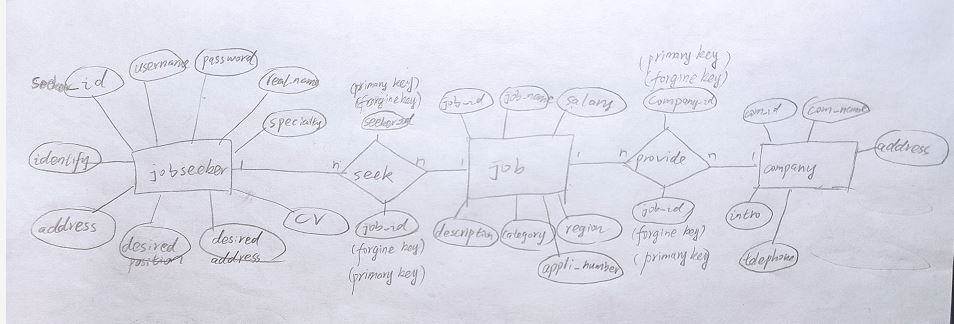 id
username
password
real_name
specialty
identify
jobseeker
address
desired
position
desired
address
CV
(primary key)
(forgine key)
seeker_id
1
n
seek
n
1
job_id
(forgine key)
(primary key)
job_id
job_name
salary
job
description
category
region
appli_number
(primary key)
(forgine key)
company_id
1
n
provide
n
1
job_id
(forgine key)
(primary key)
com_id
com_name
address
company
intro
telephone